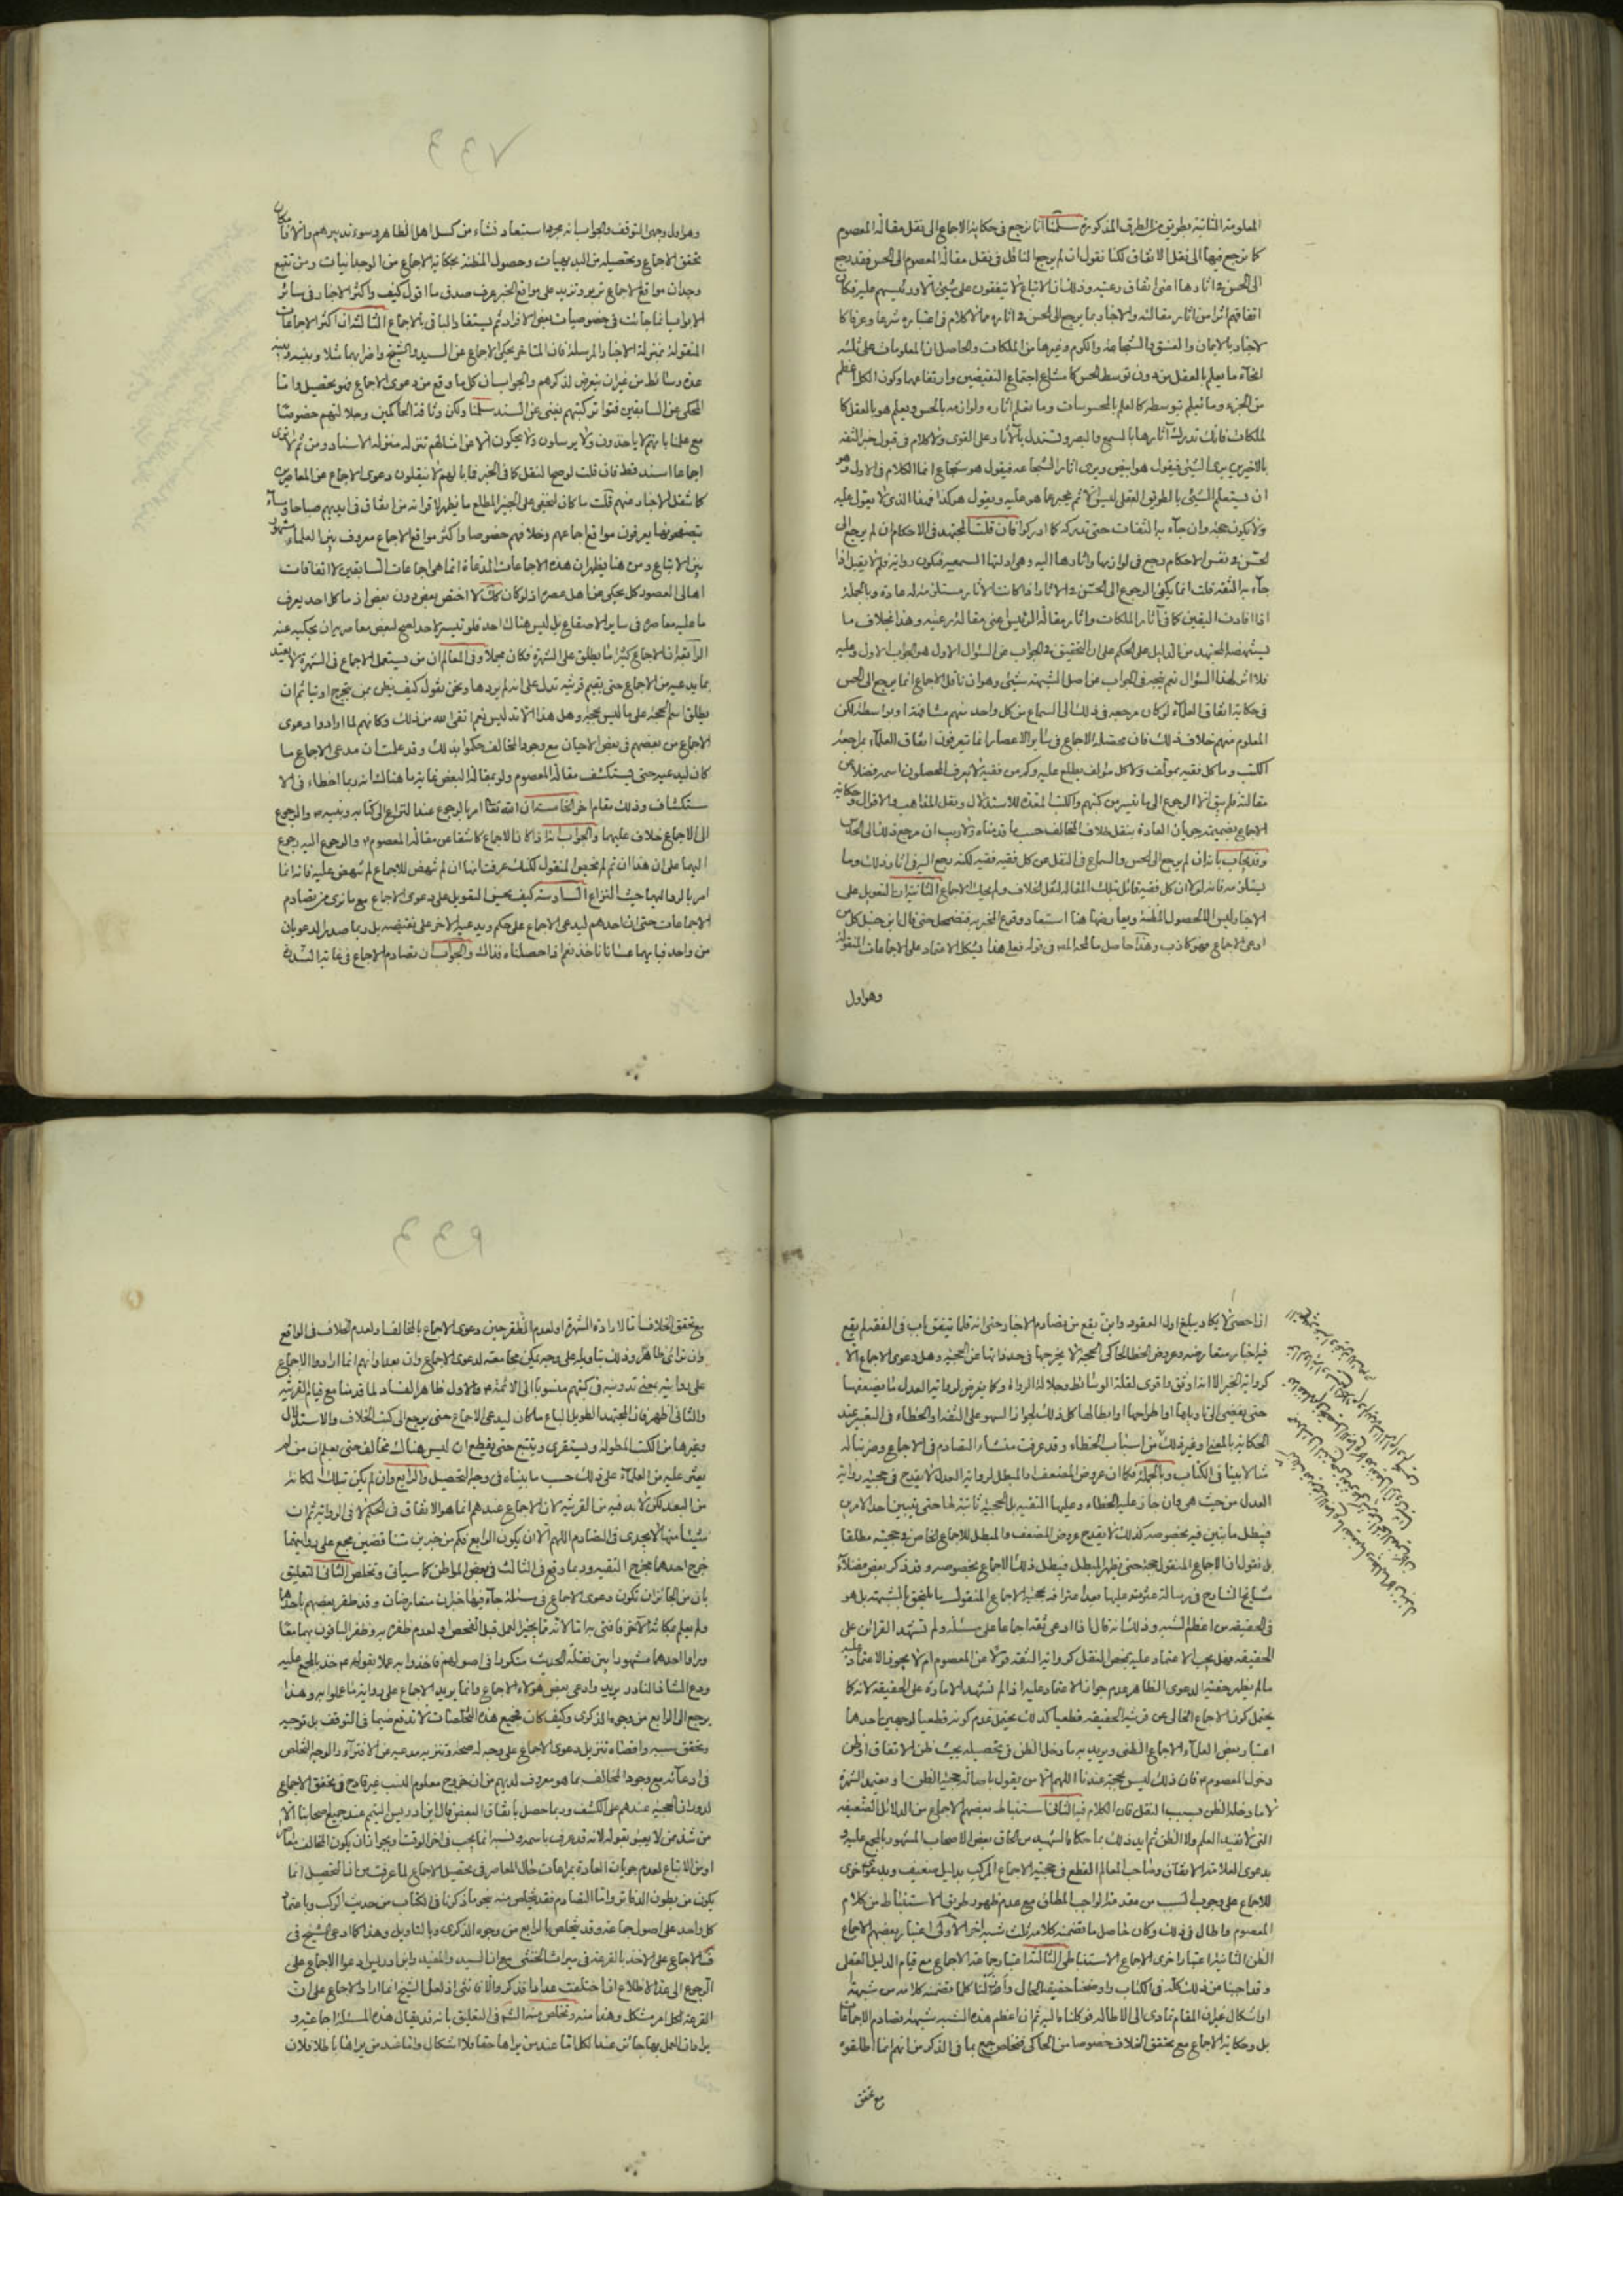 المعلومة الثانية بطريق من الطرق المذكورة سلمنا انا نرجع في حكاية الاجماع الى نقل مقالة المعصوم
كما نرجع فيها الى نقل الاتفاق لكنا نقول ان لم يرجع الناقل في نقل مقالة المعصوم الى الحس فقد رجع
الى الحس في اثارها اعني اتفاق رعيته وذلك ان الاتباع لا يتفقون على شيء الا ورئيسهم عليه فكان
اتفاقهم اثرا من اثار مقالته والاخبار بما يرجع الى الحس في اثاره مما لا كلام في اعتباره شرعا وعرفا كا
لاخبار بالايمان والفسق والشجاعة والكرم وغيرها من الملكات والحاصل ان المعلومات على ثلثة
انحآء ما يعلم بالعقل من دون توسط الحس كامتناع اجتماع النقيضين وارتفاعهما وكون الكل اعظم
من الجزء وما يعلم بتوسطه كالعلم بالمحسوسات وما يعلم اثاره ولوازمه بالحس ويعلم هو بالعقل كا
لملكات فانك تدرك آثارها بالسمع والبصر وتستدل بالآثار على القوى ولا كلام في قبول خبر الثقة
بالاخيرين يرى الشيء فيقول هو ابيض ويرى اثار الشجاعة فيقول هو شجاع انما الكلام في الاول وهو
ان يستعلم الشيء بالطريق العقلي ثم يخبر عما هو عليه ويقول هو كذا فهذا الذي لا يعول عليه
ولا يكون حجة وان جآء به الثقات حتى تدركه كما ادركوا فان قلت المجتهد في الاحكام ان لم يرجع الى
لحس في نفس الاحكام رجع في لوازمها واثارها اليه وهي ادلتها السمعية فيكون رواية فلم لا يقبل اذا
جآء به الثقة قلت انما يكفي الرجوع الى الحس في الاثار اذا كانت الاثار مستلزمة له عادة وبالجملة
اذا افادت اليقين كما في آثار الملكات واثار مقالة الرئيس اعني مقالة رعيته وهذا بخلاف ما
يستنهضه المجتهد من الدليل على الحكم على ان التحقيق في الجواب عن السؤال الاول هو الجواب الاول وعليه
فلا اثر لهذا السؤال نعم يتجه في الجواب عن اصل الشبهة شيء وهو ان ناقل الاجماع انما يرجع الى الحس
في حكاية اتفاق العلمآء لو كان مرجعه في ذلك الى السماع من كل واحد منهم مشافهة او بواسطة لكن
المعلوم منهم خلاف ذلك فان محصلة الاجماع في سائر الاعصار انما يتعرفون اتفاق العلمآء بمراجعة
الكتب وما كل فقيه بمؤلف ولا كل مؤلف يطلع عليه وكم من فقيه لا يعرف المحصلون اسمه فضلا عن
مقالته فلم يبق الا الرجوع الى ما تيسر من كتبهم والكتب المعدة للاستدلال ونقل المذاهب والاقوال وحكاية
الاجماع بضميمة جريان العادة بنقل خلاف المخالف حسبما قدمناه ولا ريب ان مرجع ذلك الى الحدس
وقد يجاب بانه ان لم يرجع الى الحس والسماع في النقل عن كل فقيه فقيه لكنه رجع اليه في اثار ذلك وما
يستلزمه فانه لولا ان كل فقيه قائل بتلك المقالة لنقل الخلاف ولم يحك الاجماع الثانية ان التعويل على
الاخبار ليس الا لحصول المظنة ويعارضها هنا استبعاد وقوع المخبر به فتضمحل حتى قال ابن حنبل كل من
ادعى الاجماع فهو كاذب وهذا حاصل ما لمحه المص في قوله فعلى هذا يشكل الاعتماد على الاجماعات المنقولة
وهو اول
٧٣٣
وهو اول وجهي التوقف والجواب انه مجرد استبعاد نشاء من كسل اهل الظاهر وسوء تدبيرهم والا فامكان
تحقق الاجماع وتحصيله من البديهيات وحصول المظنة بحكاية الاجماع من الوجدانيات ومن تتبع
وجدان مواقع الاجماع تربو وتزيد على مواقع الخبر عرف صدق ما اقول كيف واكثر الاخبار في سائر
الابواب انما جائت في خصوصيات بعض الافراد ثم يستفاد الباقي بالاجماع الثالثة ان اكثر الاجماعات
المنقولة بمنزلة الاخبار المرسلة فان المتاخر يحكي الاجماع عن السيد والشيخ واضرابهما مثلا وبينه وبينه
عدة وسائط من غير ان يتعرض لذكرهم والجواب ان كل ما وقع من دعوى الاجماع فهو تحصيل واما
المحكي عن السابقين فتواتر كتبهم يغني عن السند سلمنا ولكن وثاقة الحاكمين وجلالتهم خصوصا
مع علمنا بانهم لا ياخذون ولا يرسلون ولا يحكون الا عن امثالهم تنزله منزلة الاسناد ومن ثم لا ترى
اجماعا اسند قط فان قلت لو صح النقل كما في الخبر فما بالهم لا ينقلون دعوى الاجماع عن المعاصرين
كما تنقل الاخبار عنهم قلت ما كان ليخفى على الخبير المطلع ما يظهر لاقرانه من اتفاق في ايديهم صباحا ومسآء
يتصفحونها يعرفون مواقع اجماعهم وخلافهم خصوصا واكثر مواقع الاجماع معروف بين العلماء مشهور
بين الاتباع ومن هنا يظهر ان هذه الاجماعات المدعاة انما هي اجماعات السابقين لا اتفاقات
اهالي العصور كل يحكي عن اهل عصره اذ لو كان كك لاختص ببعض دون بعض اذ ما كل احد يعرف
ما عليه معاصروه في ساير الاصقاع بل ليس هناك احد فلو تيسر لاحد لصح لبعض معاصريه ان يحكيه عنه
الرابعة ان الاجماع كثيرا ما يطلق على الشهرة فكان مجملا وفي المعالم ان من يستعمل الاجماع في الشهرة لا يعتد
بما يدعيه من الاجماع حتى يقيم قرينة تدل على انه لم يردها ونحن نقول كيف نظن بمن يتحرج او يتاثم ان
يطلق اسم الحجة على ما ليس بحجة وهل هذا الا تدليس نعم اتفق الله من ذلك وكانهم لما ارادوا دعوى
الاجماع من بعضهم في بعض الاحيان مع وجود المخالف حكموا بذلك وقد علمت ان مدعي الاجماع ما
كان ليدعيه حتى يستكشف مقالة المعصوم ولو بمقالة البعض غاية ما هناك انه ربما اخطاء في الا
ستكشاف وذلك مقام اخر الخامسة ان الله تعالى امر بالرجوع عند التنازع الى كتابه ونبيه ص والرجوع
الى الاجماع خلاف عليهما والجواب انه اذا كان الاجماع كاشفا عن مقالة المعصوم ع والرجوع اليه رجوع
اليهما على ان هذا ان تم لم يخص المنقول لكنك عرفت انها ان لم تنهض للاجماع لم تنهض عليه فانه انما
امر بالرد اليهما حيث النزاع السادسة كيف يحسن التعويل على دعوى الاجماع مع ما نرى من تصادم
الاجماعات حتى ان احدهم ليدعي الاجماع على حكم ويدعيه الاخر على نقيضه بل ربما صدر الدعويان
من واحد فبايهما عسانا ناخذ نعم اذا حصلناه فذاك والجواب ان تصادم الاجماع في غاية الندرة
اذا احصي لا يكاد يبلغ اول العقود واين يقع من تصادم الاخبار حتى انه قلما يتفق باب في الفقه لم يقع
فيه اخبار متعارضة وعروض الخطا للحاكي الحجة لا يخرجها في حد ذاتها عن الحجية وهل دعوى الاجماع الا
كرواية الخبر الا انه اوثق واقوى لقلة الوسائط وجلالة الرواة وكما يعرض لرواية العدل ما يضعفها
حتى يفضي الى تاويلها او اطراحها او ابطالها كل ذلك لجواز السهو على الثقة والخطاء في التعبير عند
الحكاية بالمعنى وغير ذلك من اسباب الخطاء وقد عرفت منشاء التصادم في الاجماع وضربنا له
مثالا بينا في الكتاب وبالجملة فكما ان عروض المضعف والمبطل لرواية العدل لا يقدح في حجية رواية
العدل من حيث هي وان جاز عليه الخطاء وعليها التقية بل الحجية ثابتة لها حتى يتبين احد الامرين
فيبطل ما تبين فيه بخصوصه كذلك لا يقدح عروض المضعف والمبطل للاجماع الخاص في حجيته مطلقا
بل نقول ان الاجماع المنقول حجة حتى يظهر المبطل فيبطل ذلك الاجماع بخصوصه وقد ذكر بعض فضلآء
مشايخ الشارح في رسالة عثرت عليها بعد اعترافه بحجية الاجماع المنقول ما يلتحق بالشبهة بل هو
في الحقيقة من اعظم الشبه وذلك انه قال اذا ادعى ثقة اجماعا على مسئلة ولم تشهد القرائن على
الحقيقة فهل يجب الاعتماد عليه بمحض النقل كرواية الثقة قولا عن المعصوم ام لا يجوز الاعتماد عليه
ما لم يظهر حقيقة الدعوى الظاهر عدم جواز الاعتماد عليه اذا لم تشهد الامارة على الحقيقة لانه كما
يحتمل كون الاجماع الخالي عن قرينة الحقيقة قطعيا كذلك يحتمل عدم كونه قطعيا لوجهين احدهما
اعتبار بعض العلمآء الاجماع الظني ويريد به ما دخل الظن في تحصيله بحيث ظن الاتفاق او ظن
دخول المعصوم ع فان ذلك ليس بحجة عندنا اللهم الا من يقول باصالة حجية الظن او يعتبر الشهرة
لا ما دخله الظن بسبب النقل فان الكلام فيه الثاني استنباط بعضهم الاجماع من الدلائل الضعيفة
التي لا تفيد العلم ولا الظن ثم ايد ذلك بما حكاه الشهيد من الحاق بعض الاصحاب المشهور بالمجمع عليه و
بدعوى العلامة الاتفاق وصاحب المعالم القطع في حجية الاجماع المركب بدليل ضعيف وبدعوى اخرى
للاجماع على وجوب السبب من مقدمة الواجب المطلق مع عدم ظهور طريق الاستنباط من كلام
المعصوم واطال في ذلك وكان حاصل ما تضمنه كلامه ثلث شبه اخر الاولى اعتبار بعضهم الاجماع
الظن الثانية اعتبار اخرى الاجماع الاستنباطي الثالثة اعتبار جماعة الاجماع مع قيام الدليل العقلي
وقد اجبنا عن ذلك كله في الكتاب واوضحنا حقيقة الحال وازلنا كلما تضمنه كلامه من شبهة
او اشكال غير ان المقام تمادى الى الاطالة فوكلناه اليه ثم ان اعظم هذه الشبه شبهة تصادم الاجماعات
بل وحكاية الاجماع مع تحقق الخلاف خصوصا من الحاكي فتخلص جمع بما في الذكرى من انهم انما اطلقوه
مع تحقق
٩٣٣
مع تحقق الخلاف اما لارادة الشهرة او لعدم الظفر حين دعوى الاجماع بالمخالف او لعدم الخلاف في الواقع
وان تراءى ظاهرا وذلك بتاويله على وجه يمكن مجامعته لدعوى الاجماع وان بعد او انهم انما ارادوا الاجماع
على روايته بمعنى تدوينه في كتبهم منسوبا الى الائمة ع والاول ظاهر الفساد لما قدمنا مع قيام القرينة
والثاني اظهر فان المجتهد الطويل الباع ما كان ليدعي الاجماع حتى يرجع الى كتب الخلاف والاستدلال
وغيرها من الكتب المطولة ويستقري ويتتبع حتى يقطع ان ليس هناك مخالف حتى يعلم ان من لم
يعثر عليه من العلمآء على ذلك حسب ما بيناه في وجه التحصيل والرابع وان لم يكن بتلك المكانة
من البعد لكن لا بد فيه من القرينة لان الاجماع عندهم انما هو الاتفاق في الحكم لا في الرواية ثم ان
شيئا منها لا يجدي في التصادم اللهم الا ان يكون الرابع فكم من خبرين متناقضين مجمع على روايتهما
خرج احدهما مخرج التقية وربما وقع في الثالث في بعض المواطن كما سياتي وتخلص الثاني في التعليق
بان من الجائز ان تكون دعوى الاجماع في مسئلة جآء فيها خبران متعارضان وقد ظفر بعضهم باحدهما
ولم يعلم بمكانة الآخر فافتى به اما لانه ممن يجيز العمل قبل الفحص او لعدم ظفره به وظفر الباقون بهما معا
وراوا احدهما مشهورا بين نقلة الحديث متكررا في اصولهم فاخذوا به عملا بقوله ع خذ بالمجمع عليه
ودع الشاذ النادر يريد وادعى بعض هؤلاء الاجماع وانما يريد الاجماع على رواية ما عملوا به وهذا
يرجع الى الرابع من وجوه الذكرى وكيف كان فجميع هذه التخلصات لا تدفع ضيما في التوقف بل توجيه
وتحقق سببه واقتضاه تنزيل دعوى الاجماع على وجه له صحة وتنزيه مدعيه عن الافتراء والوجه التخلص
في ادعآئه مع وجود المخالف بما هو معروف لديهم من ان خروج معلوم النسب غير قادح في تحقق الاجماع
لدوران الحجية عندهم على الكشف وربما حصل باتفاق البعض قال ابن ادريس التيمم عند جميع اصحابنا الا
من شذ ممن لا يعبؤ بقوله لانه قد عرف باسمه ونسبه انما يجب في اخر الوقت ويجوز ان يكون المخالف معاصرا
او من الاتباع لعدم جريان العادة بمراعات حال المعاصر في تحصيل الاجماع لما عرفت من ان التحصيل انما
يكون من بطون الدفاتر واما التصادم فقد يتخلص منه بنحو ما ذكرنا في الكتاب من حديث الركب وباعتماد
كل واحد على اصول جماعة وقد يتخلص بالرابع من وجوه الذكرى وبالتاويل وهذا كما ادعى الشيخ في
ف الاجماع على الاخذ بالقرعة في ميراث الخنثى مع ان السيد والمفيد وابن ادريس ادعوا الاجماع على
الرجوع الى عد الاضلاع ان اختلفت عددا فذكر والا فانثى اذ لعل الشيخ انما اراد الاجماع على ان
القرعة لكل امر مشكل وهذا منه وتخلص منه الش في التعليق بانه قد يقال هذه المسئلة اجماعية و
يراد ان العمل بها جائز عندا لكل اما عند من يراها حقا فلا اشكال واما عند من يراها باطلا فلان